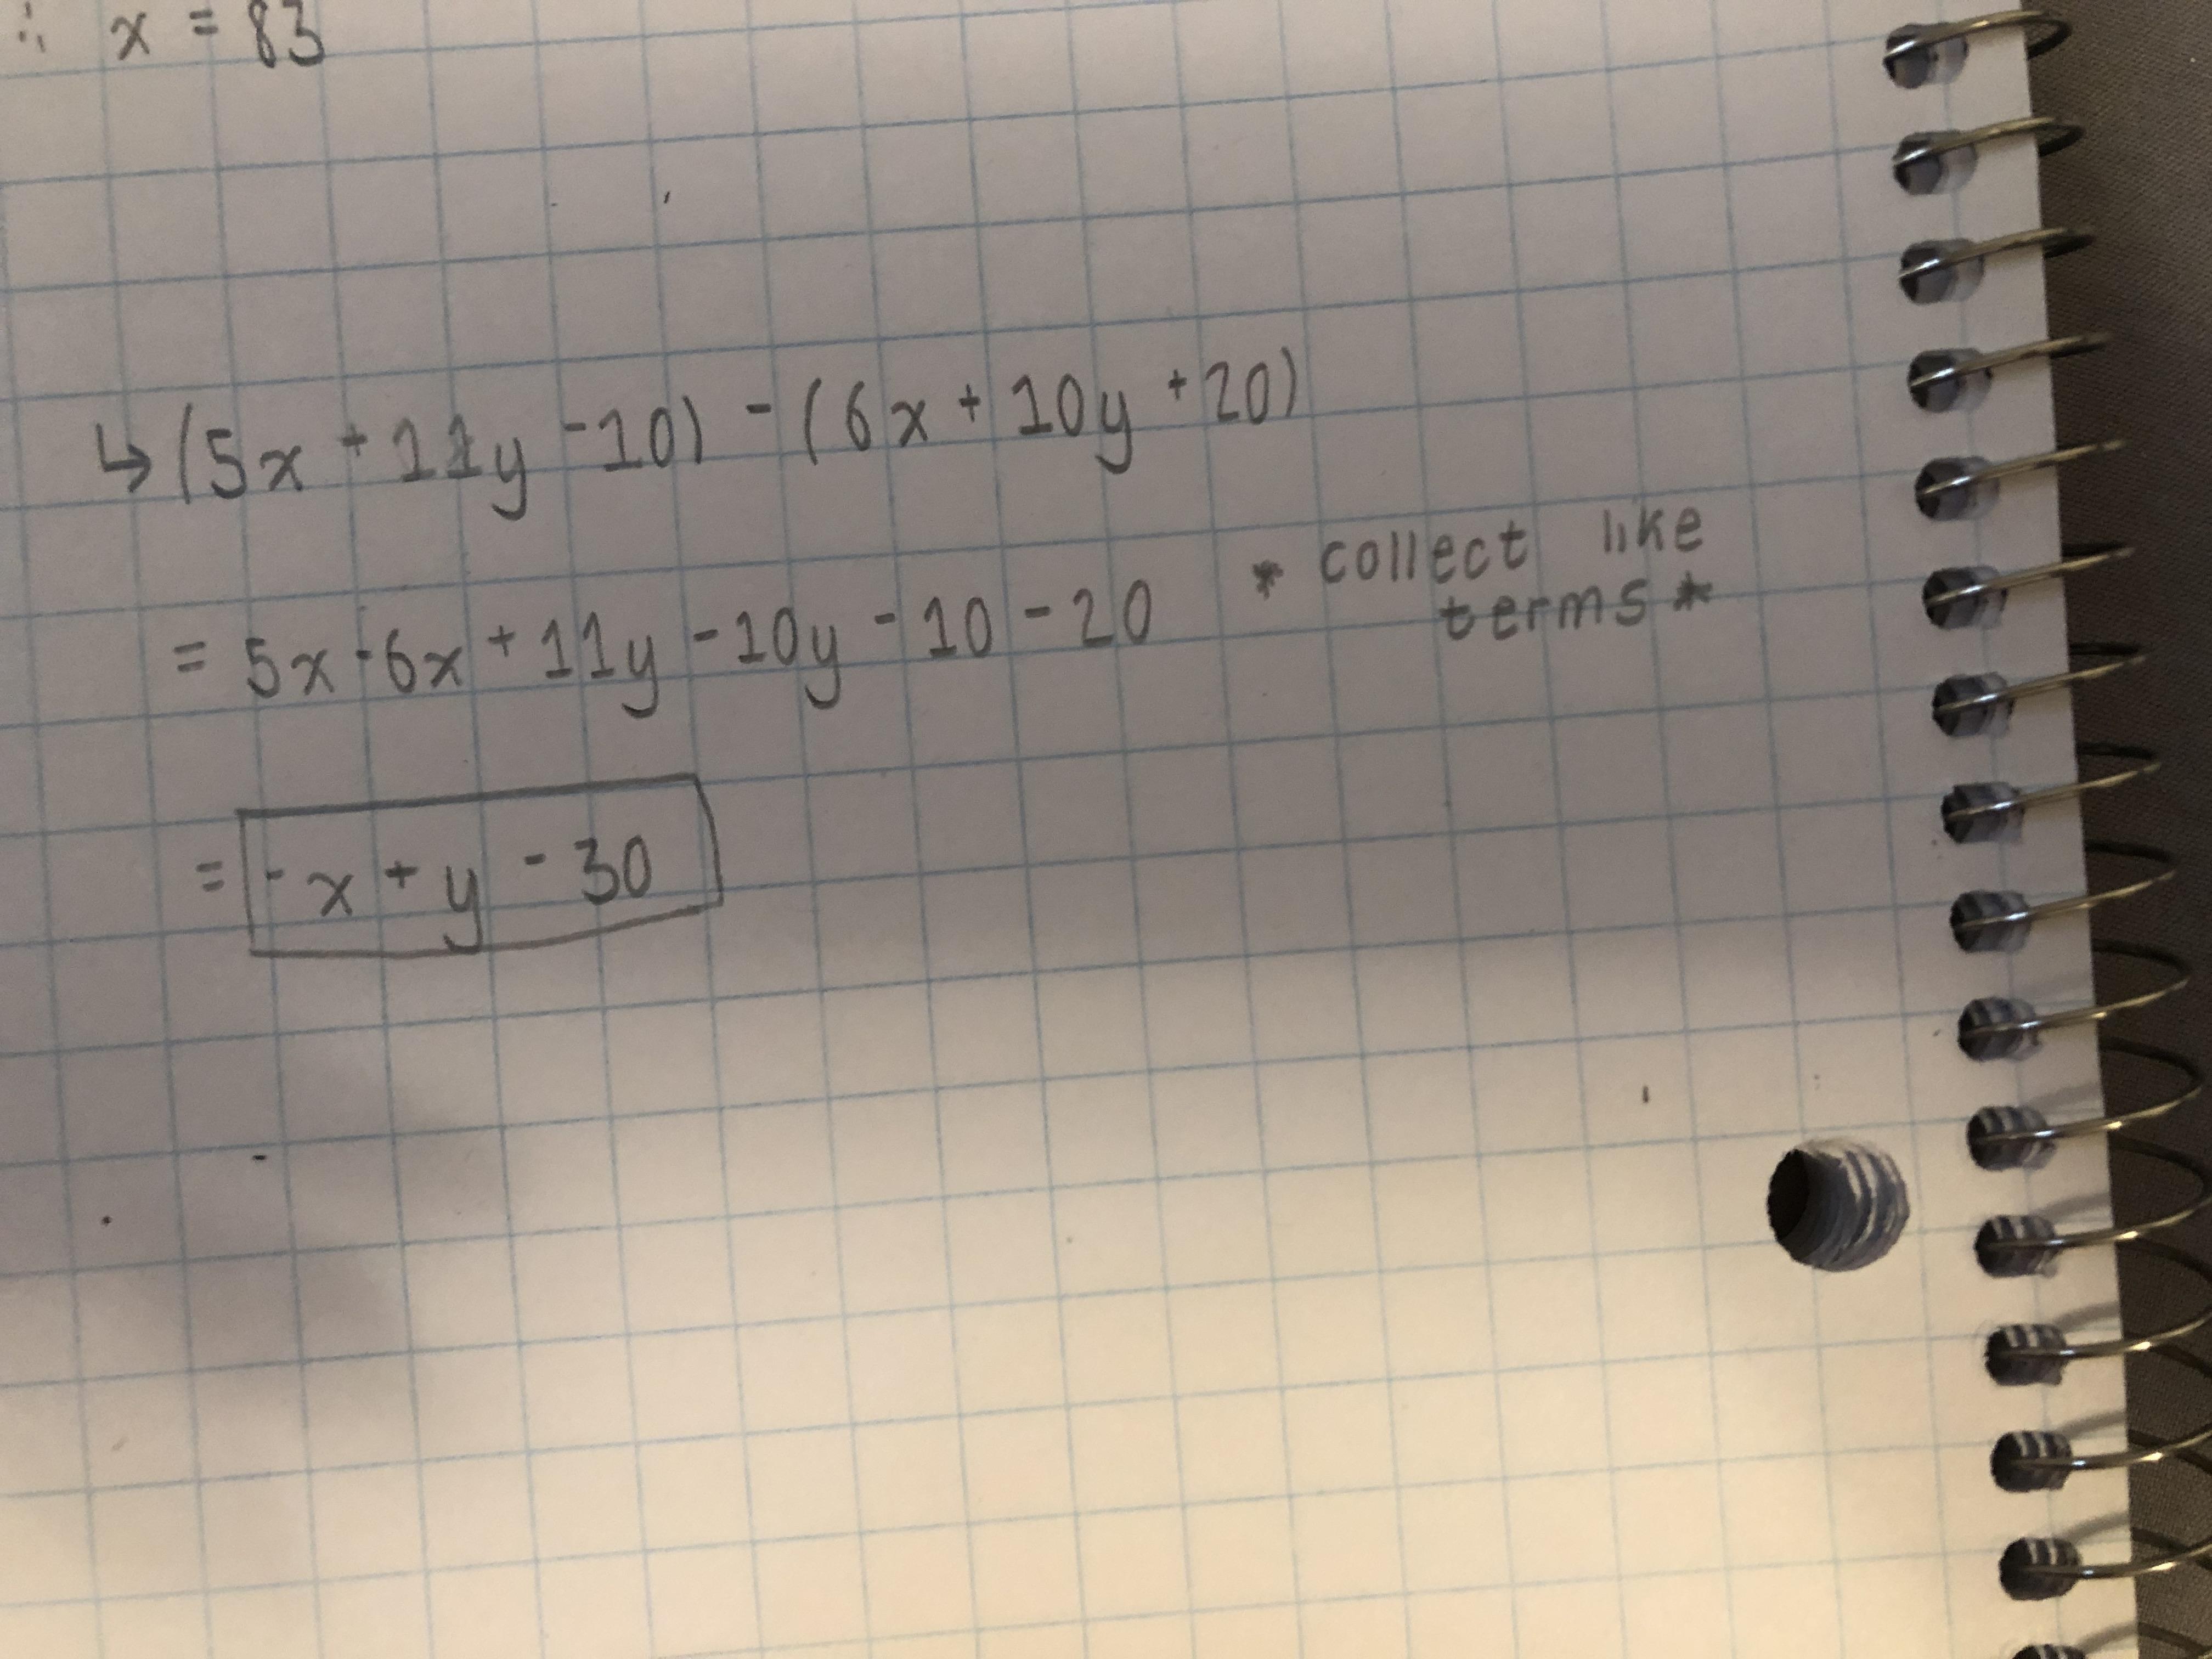 ∴ x = 83
↳ (5x + 11y - 10) - (6x + 10y + 20)
= 5x - 6x + 11y - 10y - 10 - 20 * collect like
terms *
= -x + y - 30